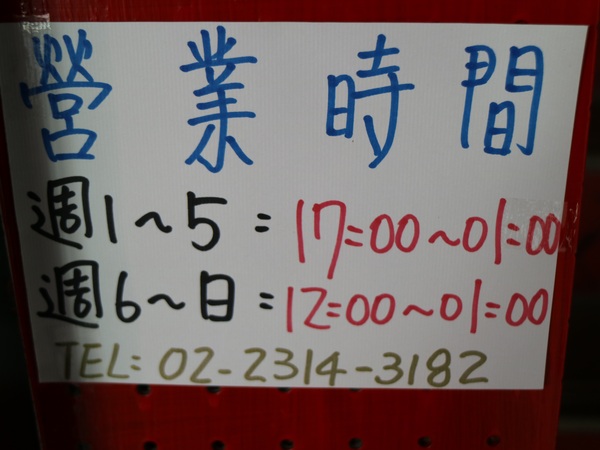 營業時間
週1~5:17:00~01:00
週6~日:12:00~01:00
TEL:02-2314-3182